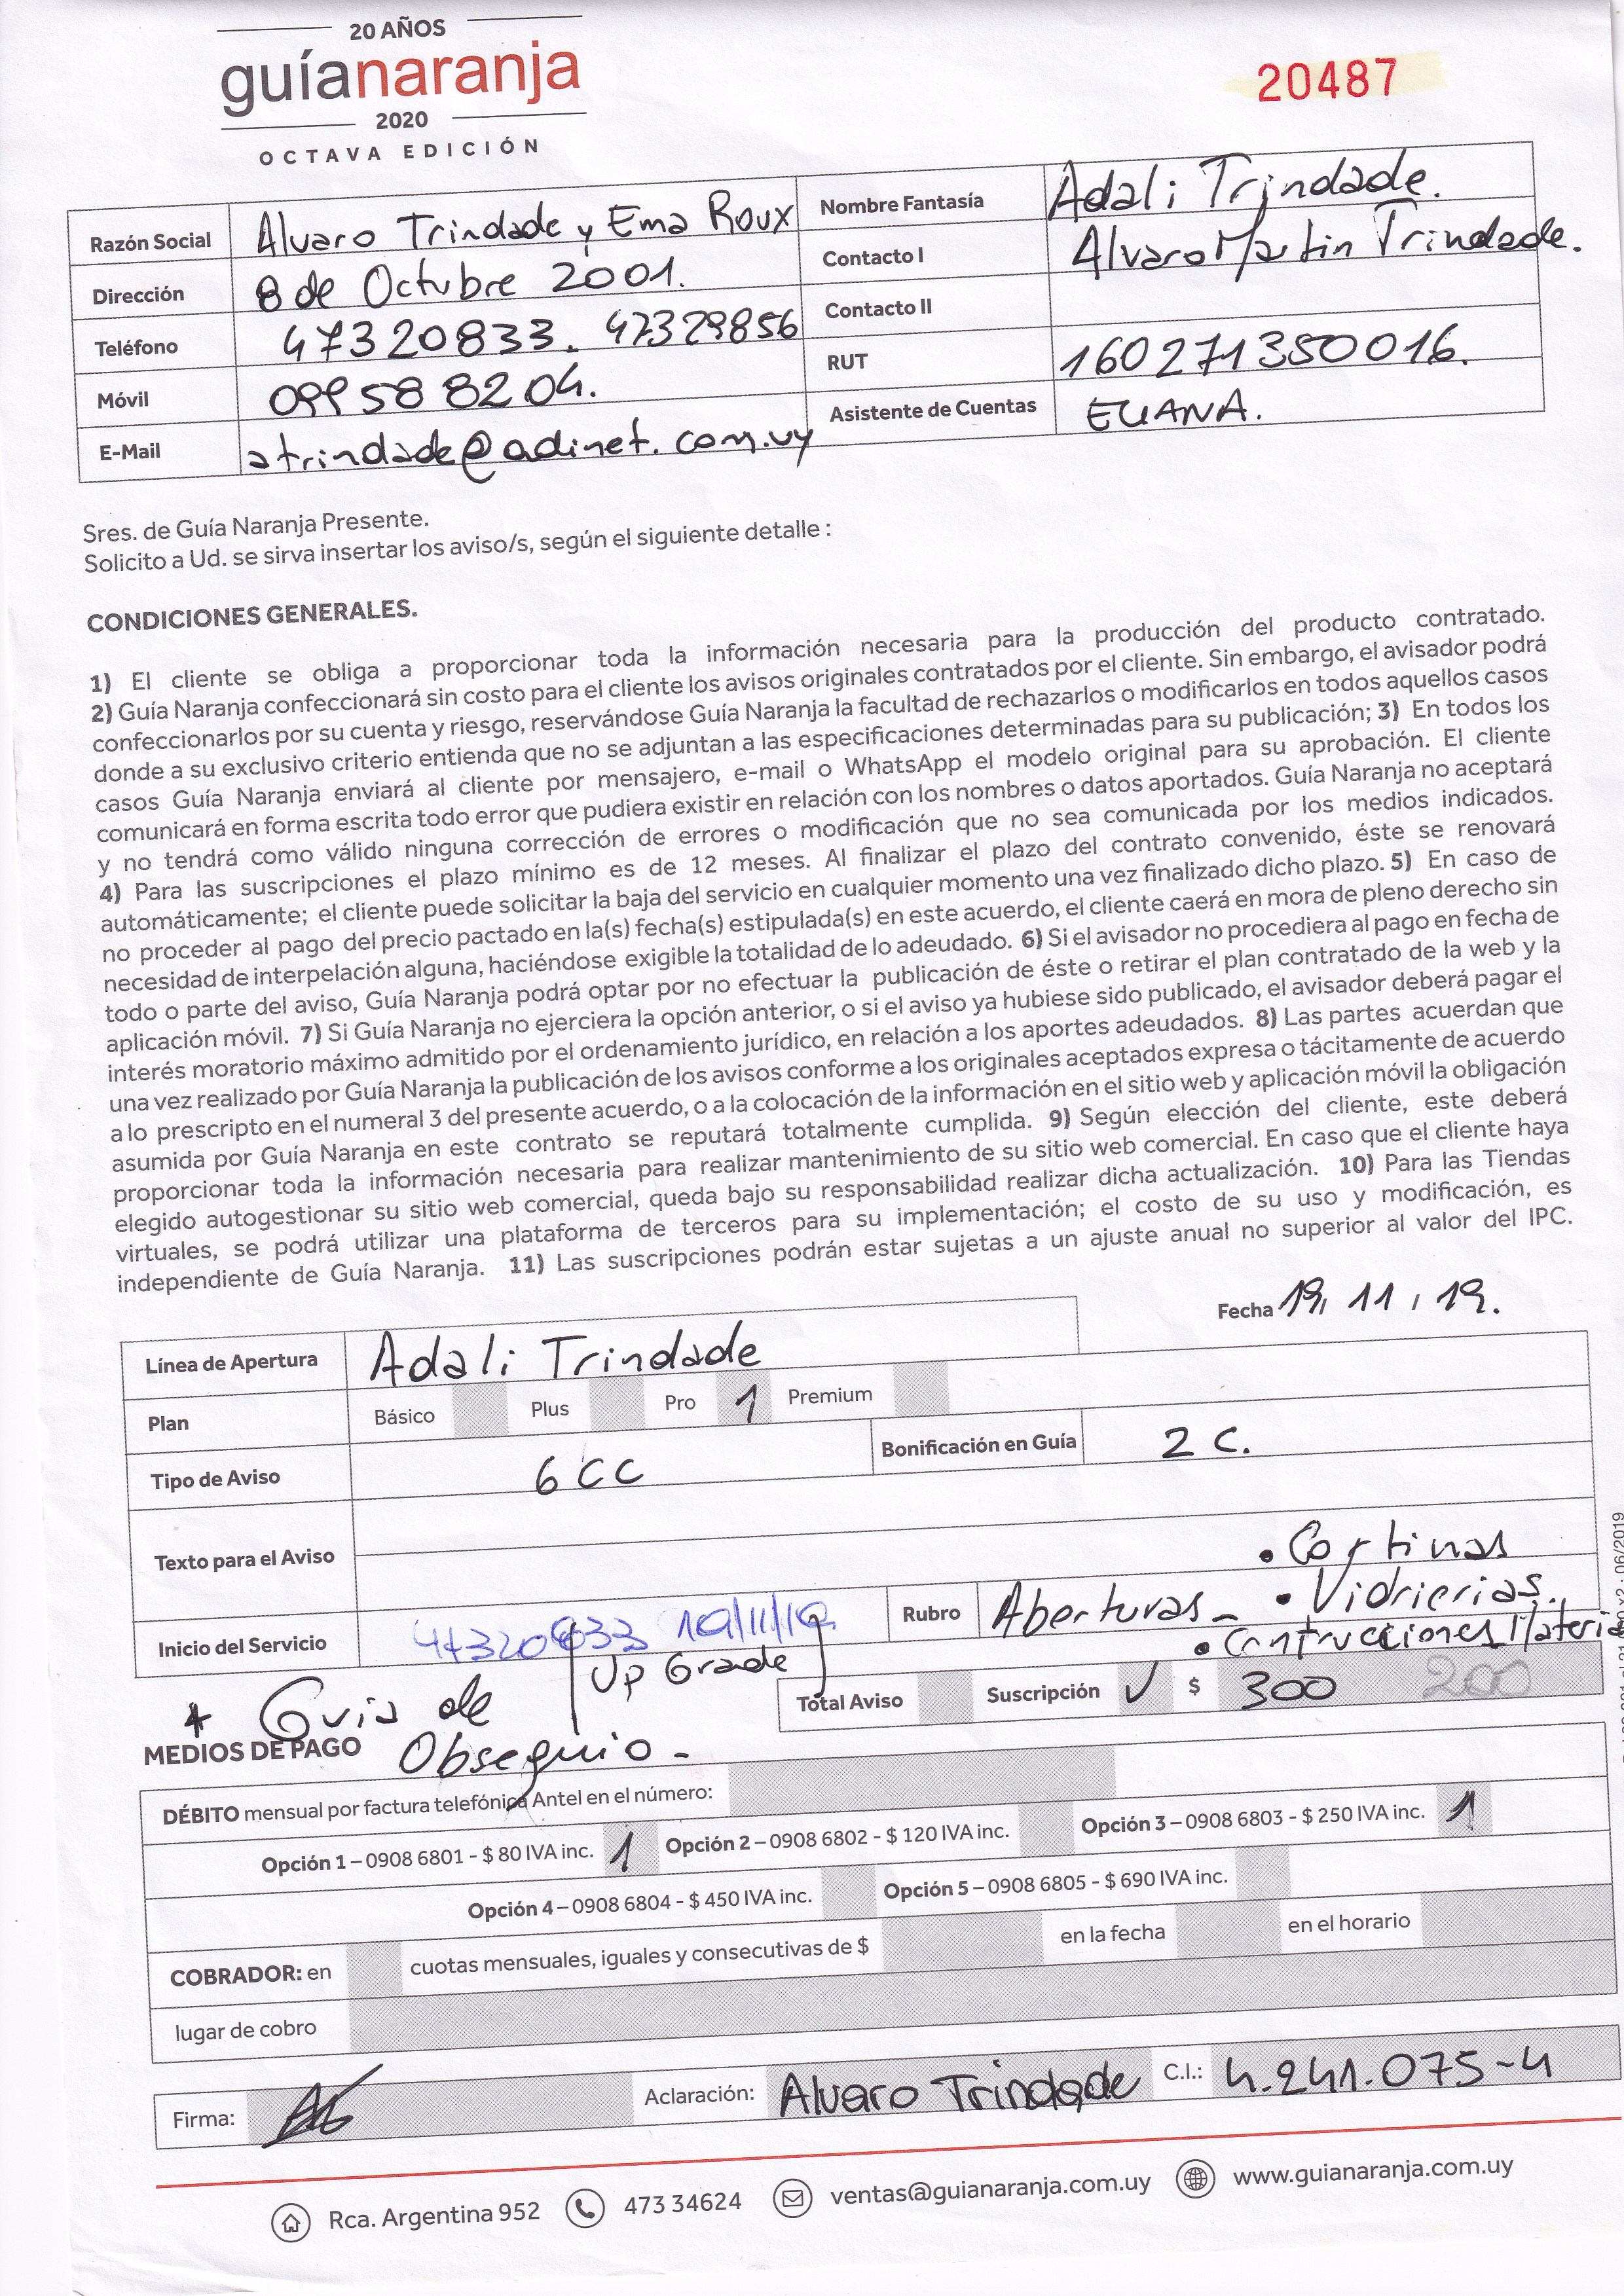 20 AÑOS
guíanaranja
2020
OCTAVA EDICIÓN
20487
Razón Social Alvaro Trindade y Ema Roux
Nombre Fantasía Adali Trindade.
Dirección 8 de Octubre 2001.
Contacto I Alvaro Martin Trindade.
Teléfono 47320833. 47329856
Contacto II
Móvil 099588204.
RUT 160271350016.
E-Mail atrindade@adinet.com.uy
Asistente de Cuentas ELIANA.
Sres. de Guía Naranja Presente.
Solicito a Ud. se sirva insertar los aviso/s, según el siguiente detalle :
CONDICIONES GENERALES.
1) El cliente se obliga a proporcionar toda la información necesaria para la producción del producto contratado.
2) Guía Naranja confeccionará sin costo para el cliente los avisos originales contratados por el cliente. Sin embargo, el avisador podrá
confeccionarlos por su cuenta y riesgo, reservándose Guía Naranja la facultad de rechazarlos o modificarlos en todos aquellos casos
donde a su exclusivo criterio entienda que no se adjuntan a las especificaciones determinadas para su publicación; 3) En todos los
casos Guía Naranja enviará al cliente por mensajero, e-mail o WhatsApp el modelo original para su aprobación. El cliente
comunicará en forma escrita todo error que pudiera existir en relación con los nombres o datos aportados. Guía Naranja no aceptará
y no tendrá como válido ninguna corrección de errores o modificación que no sea comunicada por los medios indicados.
4) Para las suscripciones el plazo mínimo es de 12 meses. Al finalizar el plazo del contrato convenido, éste se renovará
automáticamente; el cliente puede solicitar la baja del servicio en cualquier momento una vez finalizado dicho plazo. 5) En caso de
no proceder al pago del precio pactado en la(s) fecha(s) estipulada(s) en este acuerdo, el cliente caerá en mora de pleno derecho sin
necesidad de interpelación alguna, haciéndose exigible la totalidad de lo adeudado. 6) Si el avisador no procediera al pago en fecha de
todo o parte del aviso, Guía Naranja podrá optar por no efectuar la publicación de éste o retirar el plan contratado de la web y la
aplicación móvil. 7) Si Guía Naranja no ejerciera la opción anterior, o si el aviso ya hubiese sido publicado, el avisador deberá pagar el
interés moratorio máximo admitido por el ordenamiento jurídico, en relación a los aportes adeudados. 8) Las partes acuerdan que
una vez realizado por Guía Naranja la publicación de los avisos conforme a los originales aceptados expresa o tácitamente de acuerdo
a lo prescripto en el numeral 3 del presente acuerdo, o a la colocación de la información en el sitio web y aplicación móvil la obligación
asumida por Guía Naranja en este contrato se reputará totalmente cumplida. 9) Según elección del cliente, este deberá
proporcionar toda la información necesaria para realizar mantenimiento de su sitio web comercial. En caso que el cliente haya
elegido autogestionar su sitio web comercial, queda bajo su responsabilidad realizar dicha actualización. 10) Para las Tiendas
virtuales, se podrá utilizar una plataforma de terceros para su implementación; el costo de su uso y modificación, es
independiente de Guía Naranja. 11) Las suscripciones podrán estar sujetas a un ajuste anual no superior al valor del IPC.
Fecha 19, 11, 19.
Línea de Apertura Adali Trindade
Plan Básico Plus Pro 1 Premium
Tipo de Aviso 6 CC Bonificación en Guía 2 C.
Texto para el Aviso
• Cortinas
Rubro Aberturas - • Vidrierias.
Inicio del Servicio 47320833 19/11/19
• Contrucciones Materia
Up Grade
Total Aviso Suscripción ✓ $ 300 200
* Guia de
Obsequio -
MEDIOS DE PAGO
DÉBITO mensual por factura telefónica Antel en el número:
Opción 1 – 0908 6801 - $ 80 IVA inc. 1 Opción 2 – 0908 6802 - $ 120 IVA inc. Opción 3 – 0908 6803 - $ 250 IVA inc. 1
Opción 4 – 0908 6804 - $ 450 IVA inc. Opción 5 – 0908 6805 - $ 690 IVA inc.
COBRADOR: en cuotas mensuales, iguales y consecutivas de $ en la fecha en el horario
lugar de cobro
Firma: Aclaración: Alvaro Trindade C.I.: 4.241.075-4
Rca. Argentina 952 473 34624 ventas@guianaranja.com.uy www.guianaranja.com.uy